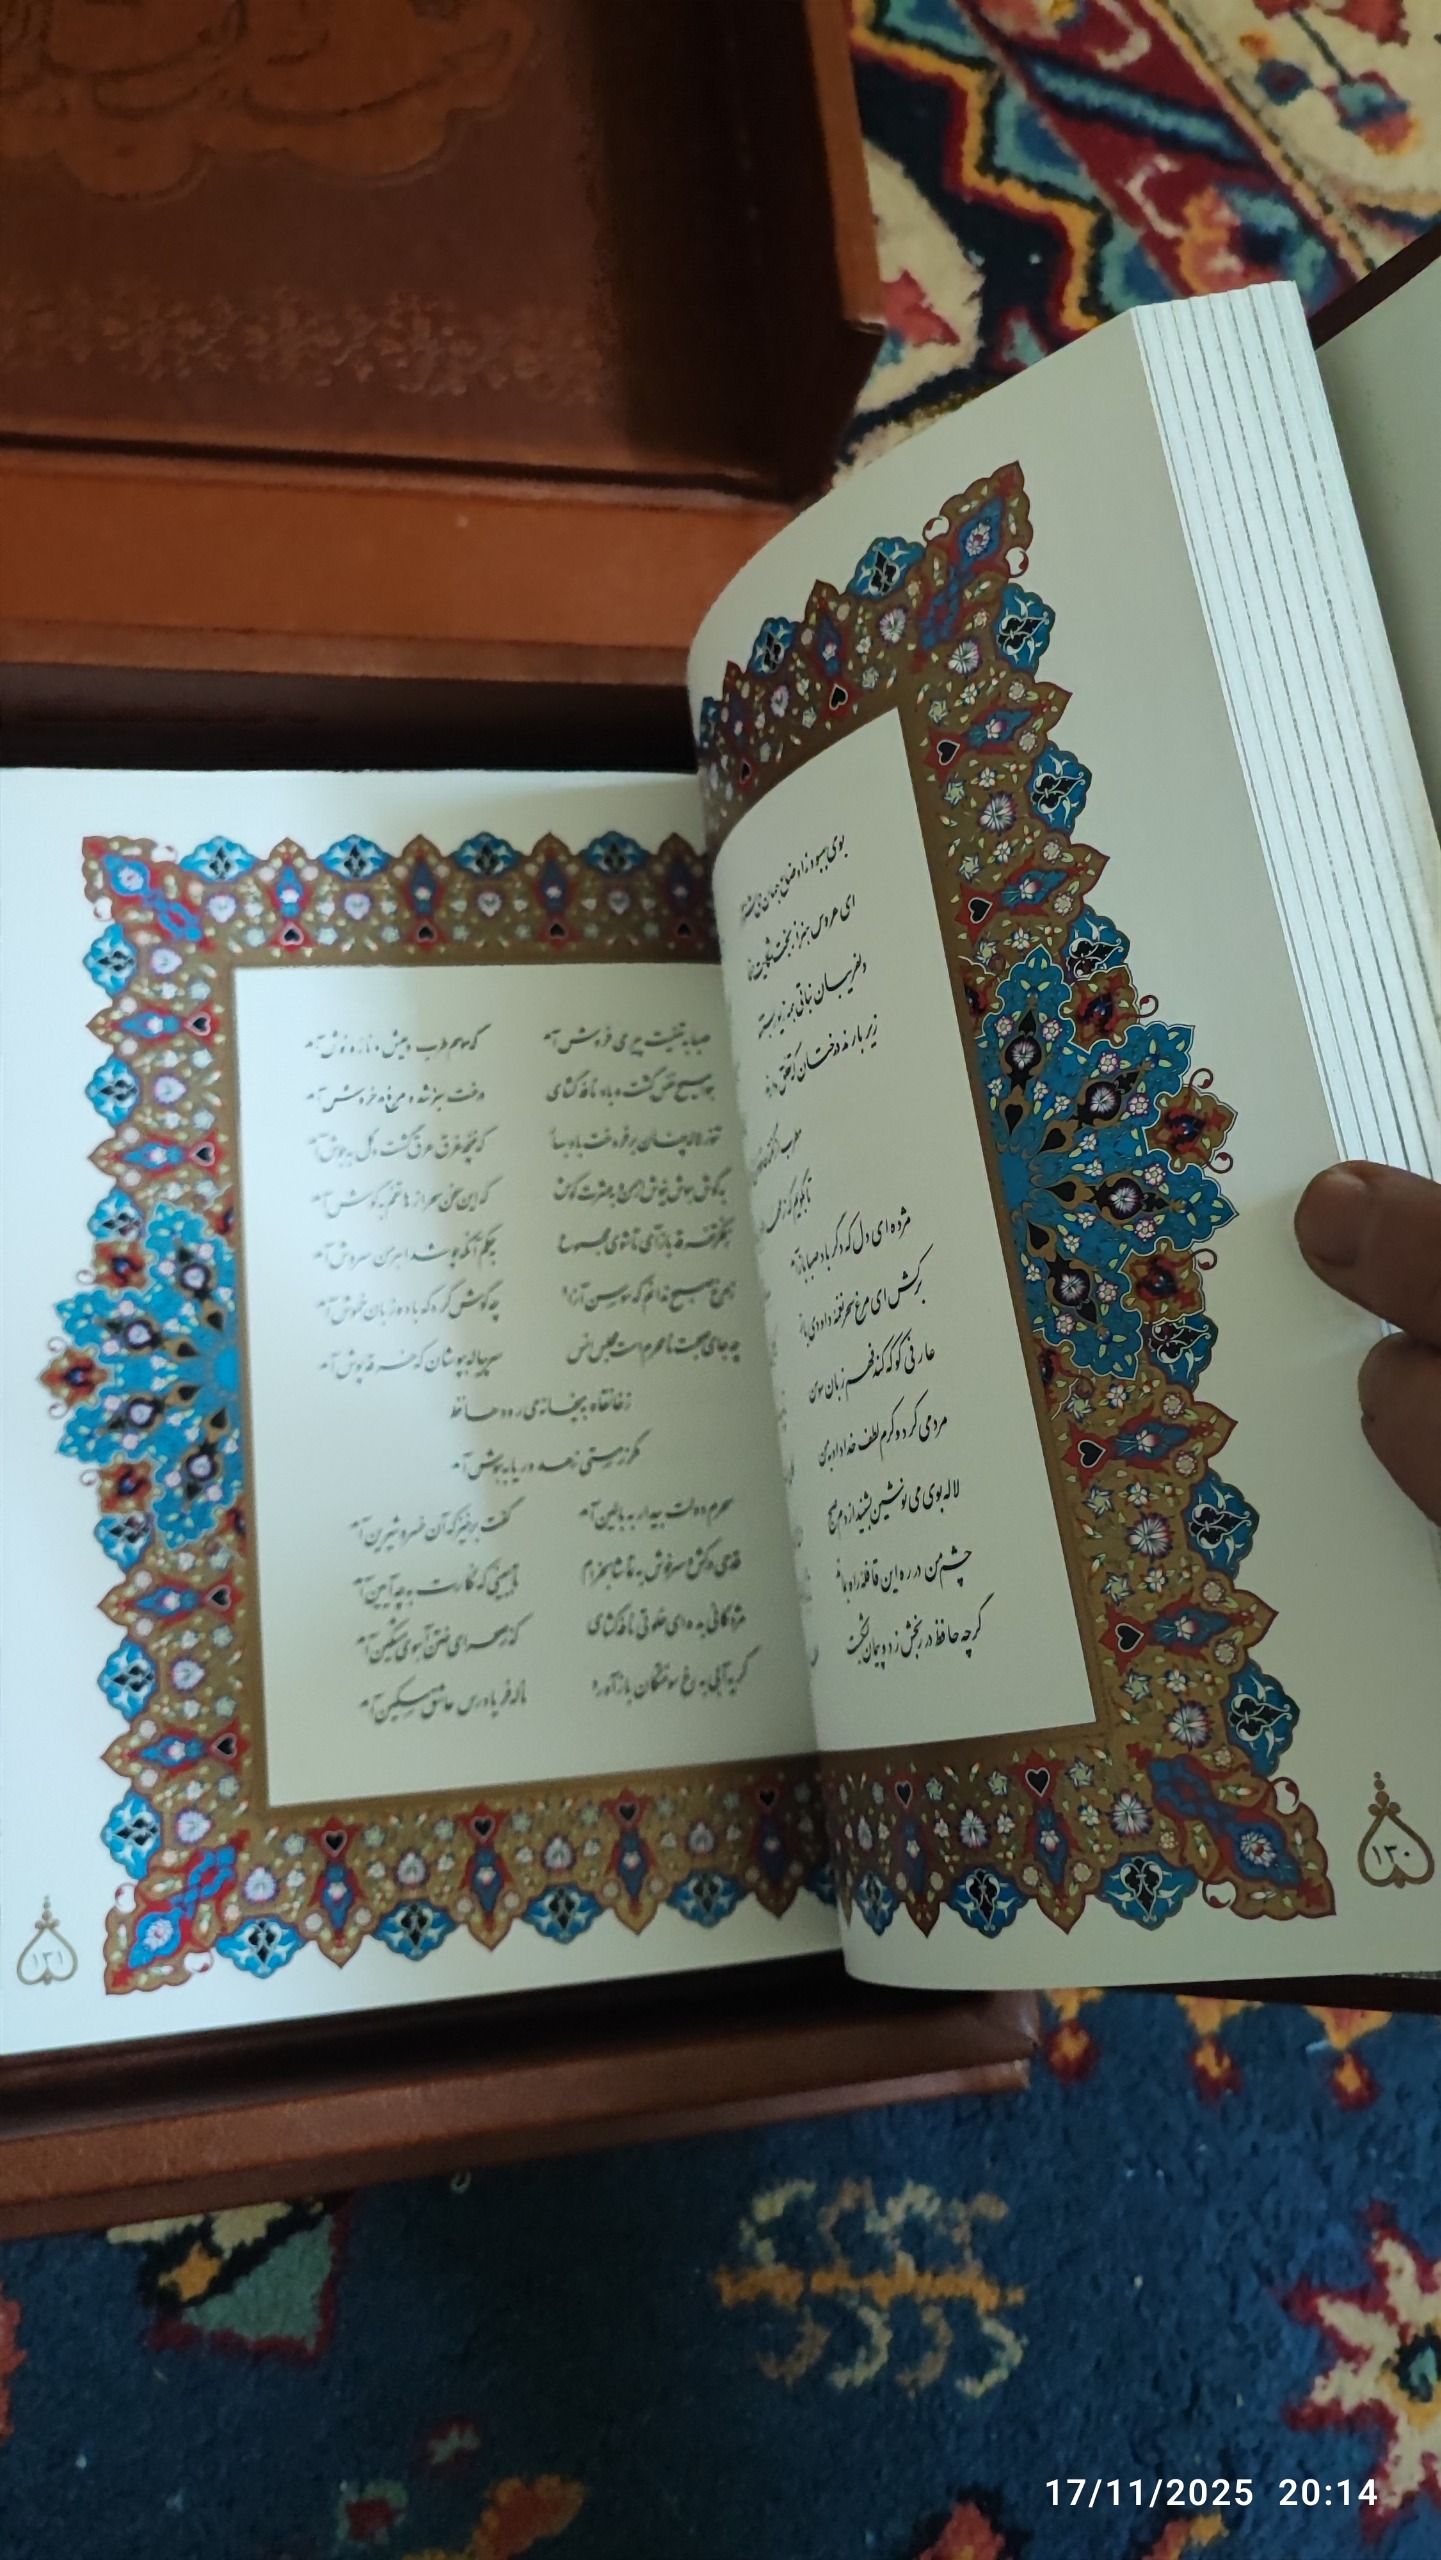 بوی بهبود ز اوضاع جهان می‌شنوم
ای عروس هنر از بخت شکایت
دلفریبان نباتی همه زیور بستند
زیر بارند درختان که تعلق دارند
مطرب از گفته حافظ
تا بگویم که ز
مژده ای دل که دگر باد صبا باز آمد
برکش ای مرغ سحر نغمه داودی باز
عارفی کو که کند فهم زبان سوسن
مردمی کرد و کرم لطف خداداد به من
لاله بوی می نوشین بشنید از دم صبح
چشم من در ره این قافله راه بماند
گرچه حافظ در رنجش زد و پیمان بشکست
۱۳۰
صبا به تهنیت پیر می فروش آمد که موسم طرب و عیش و ناز و نوش آمد
هوا مسیح نفس گشت و باد نافه گشای درخت سبز شد و مرغ در خروش آمد
تنور لاله چنان برفروخت باد بهار که غنچه غرق عرق گشت و گل به جوش آمد
به گوش هوش نیوش از من و به عشرت کوش که این سخن سحر از هاتفم به گوش آمد
ز فکر تفرقه باز آی تا شوی مجموع به حکم آنکه چو شد اهرمن سروش آمد
ز مرغ صبح ندانم که سوسن آزاد چه گوش کرد که با ده زبان خموش آمد
چه جای صحبت نامحرم است مجلس انس سر پیاله بپوشان که خرقه پوش آمد
ز خانقاه به میخانه می رود حافظ
مگر ز مستی زهد و ریا به هوش آمد
سحرم دولت بیدار به بالین آمد گفت برخیز که آن خسرو شیرین آمد
قدحی درکش و سرخوش به تماشا بخرام تا ببینی که نگارت به چه آیین آمد
مژدگانی بده ای خلوتی نافه گشای که ز صحرای ختن آهوی مشکین آمد
گریه آبی به رخ سوختگان باز آورد ناله فریادرس عاشق مسکین آمد
۱۳۱
17/11/2025 20:14